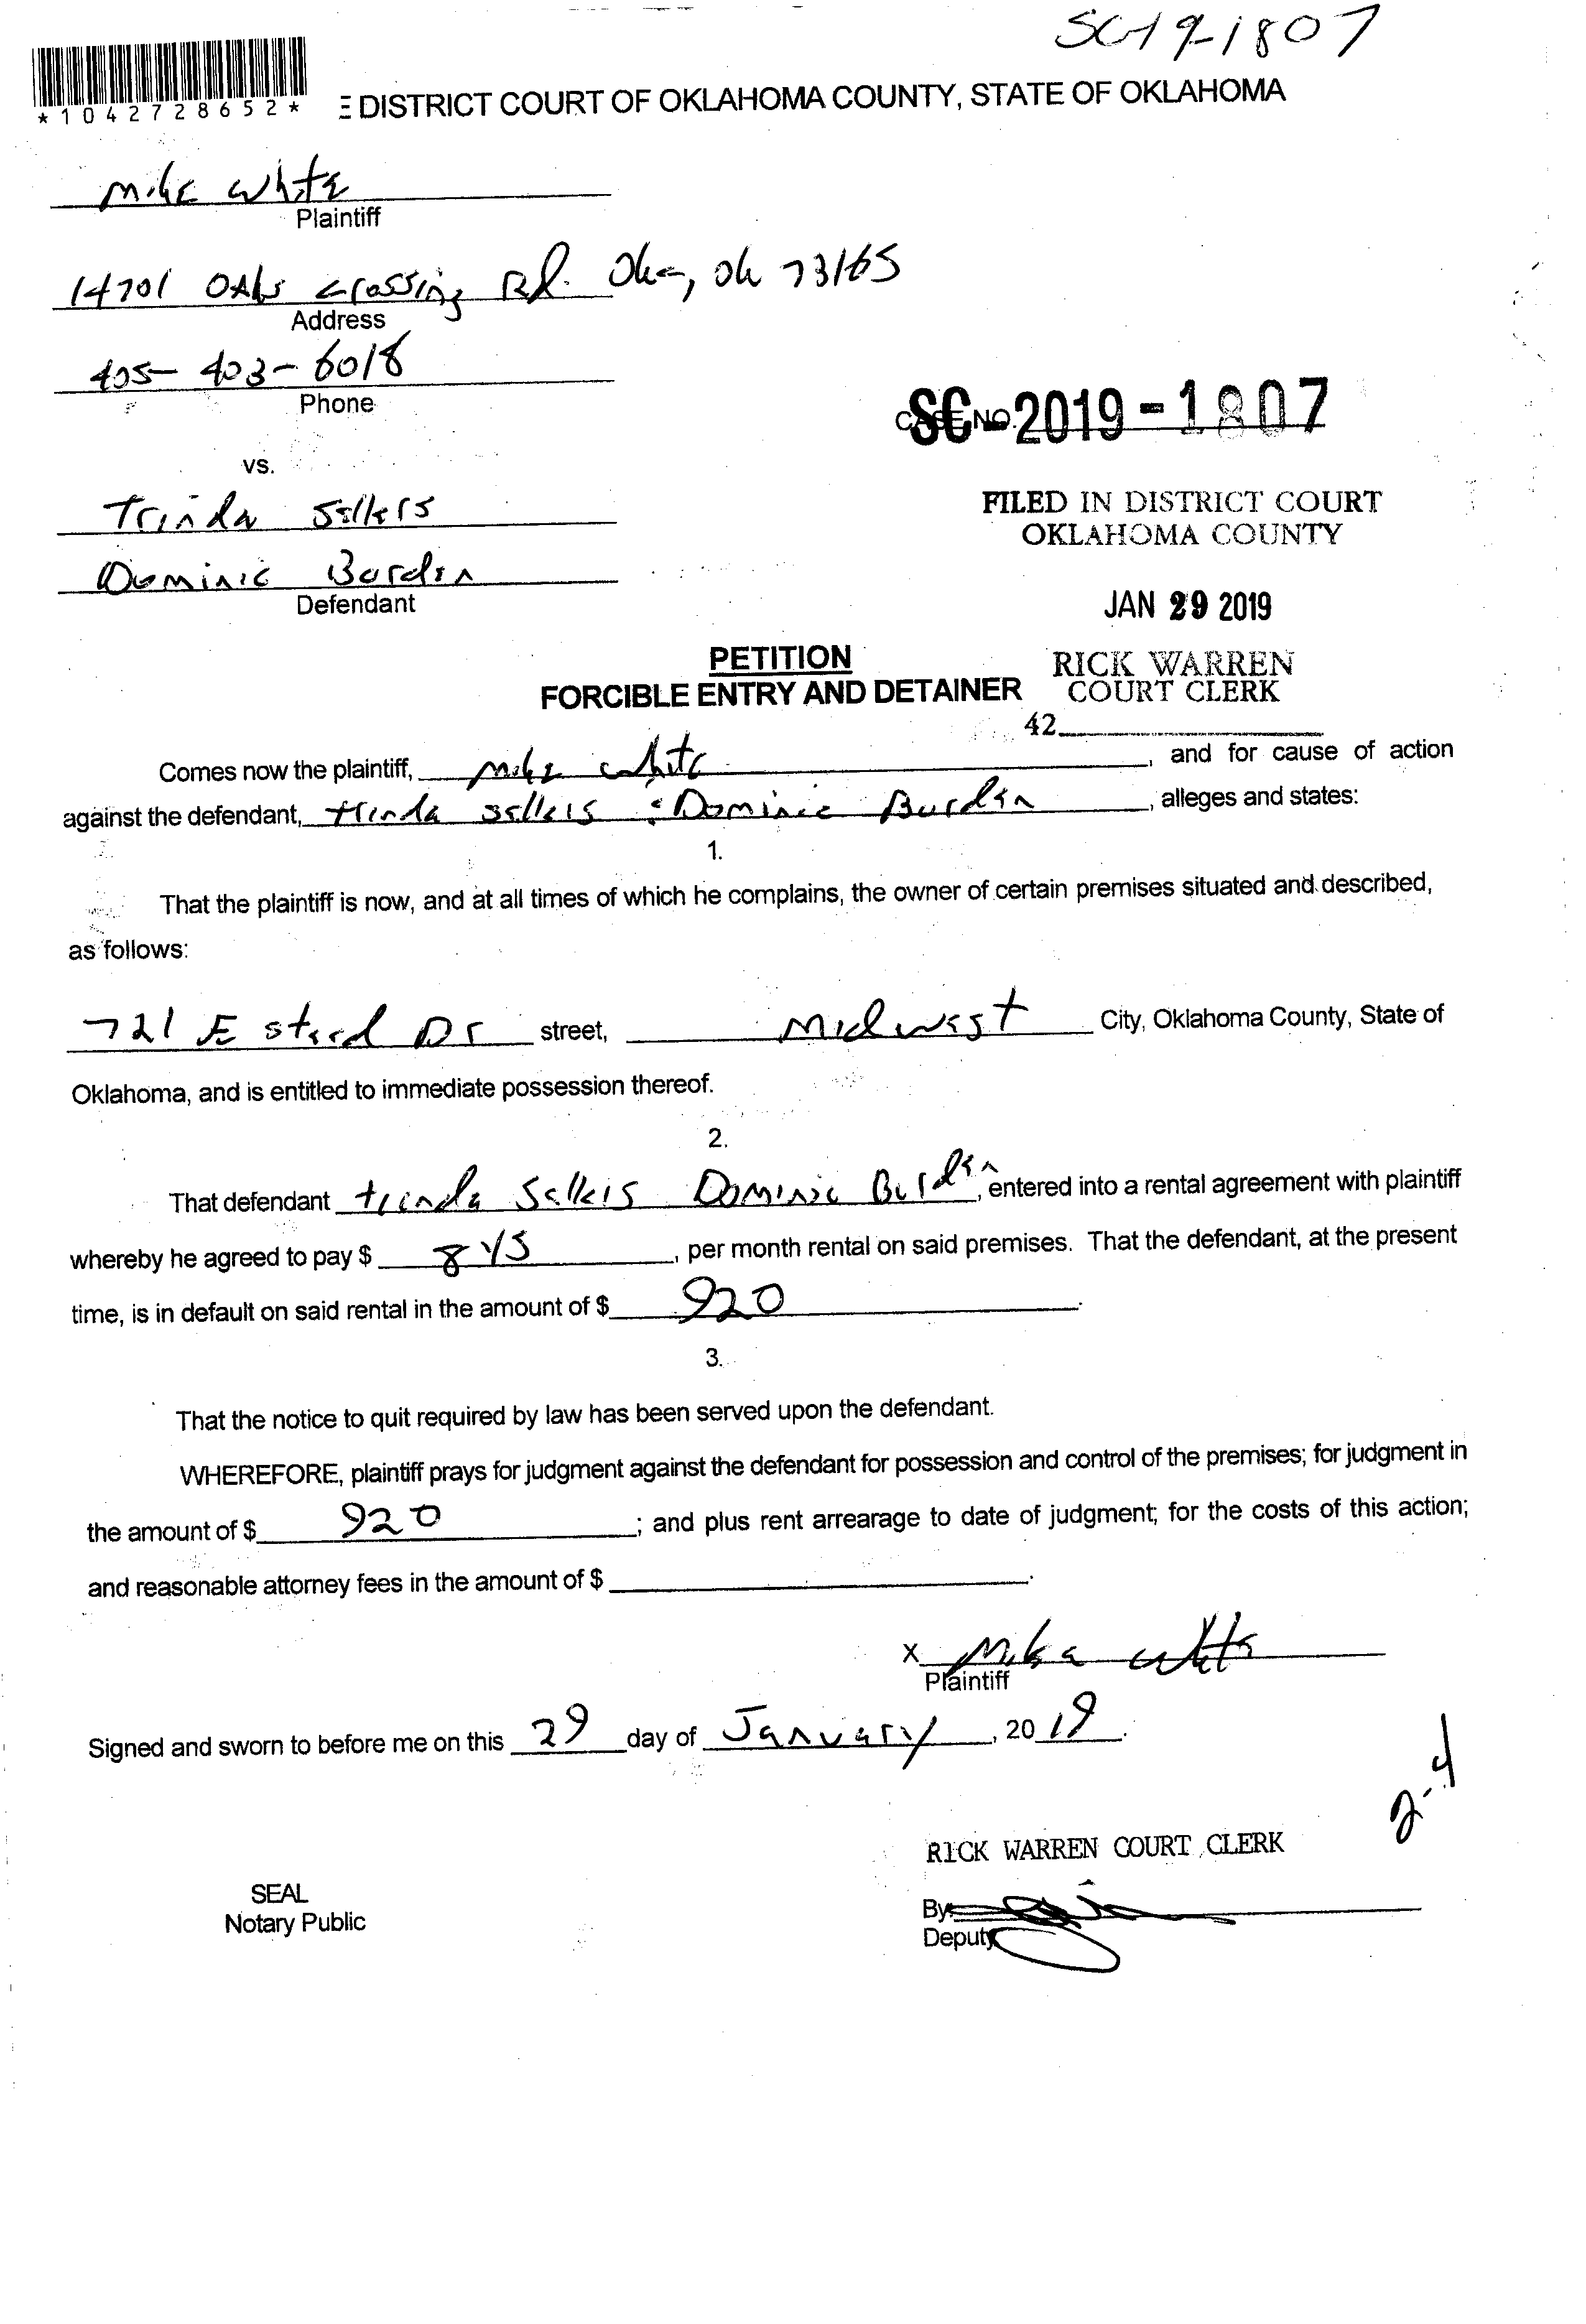 SC-19-1807
*1042728652*
E DISTRICT COURT OF OKLAHOMA COUNTY, STATE OF OKLAHOMA
Mike White
Plaintiff
14701 Oaks crossing Rd. Okc, Ok 73165
Address
405-403-6018
Phone
CASE NO.
SC-2019-1807
vs.
Trinda Sellers
FILED IN DISTRICT COURT
OKLAHOMA COUNTY
Dominic Burden
Defendant
JAN 29 2019
PETITION
FORCIBLE ENTRY AND DETAINER
RICK WARREN
COURT CLERK
42
Comes now the plaintiff, Mike White, and for cause of action
against the defendant, trinda sellers & Dominic Burden, alleges and states:
1.
That the plaintiff is now, and at all times of which he complains, the owner of certain premises situated and described,
as follows:
721 E Steed Dr street, Midwest City, Oklahoma County, State of
Oklahoma, and is entitled to immediate possession thereof.
2.
That defendant trinda Sellers Dominic Burden, entered into a rental agreement with plaintiff
whereby he agreed to pay $ 845, per month rental on said premises. That the defendant, at the present
time, is in default on said rental in the amount of $ 920.
3.
That the notice to quit required by law has been served upon the defendant.
WHEREFORE, plaintiff prays for judgment against the defendant for possession and control of the premises; for judgment in
the amount of $ 920; and plus rent arrearage to date of judgment; for the costs of this action;
and reasonable attorney fees in the amount of $.
X Mike White
Plaintiff
Signed and sworn to before me on this 29 day of January, 2019.
2-4
RICK WARREN COURT CLERK
SEAL
Notary Public
By:
Deputy